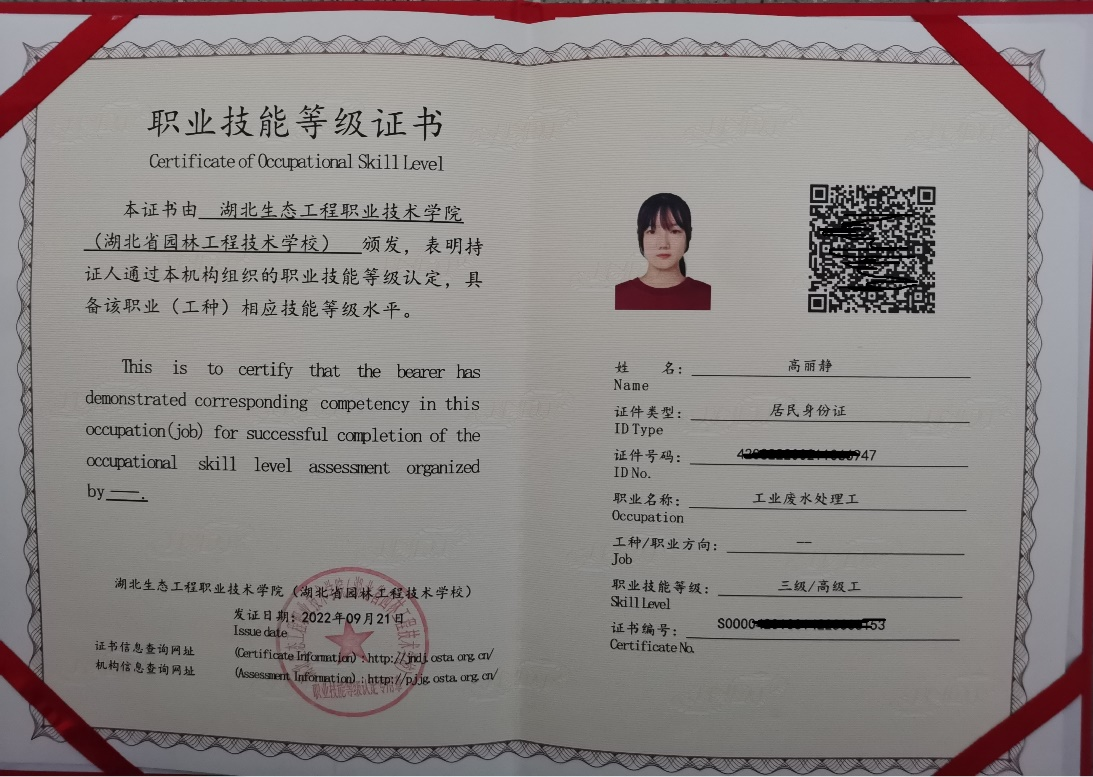 职业技能等级证书
Certificate of Occupational Skill Level
本证书由 湖北生态工程职业技术学院
（湖北省园林工程技术学校） 颁发，表明持
证人通过本机构组织的职业技能等级认定，具
备该职业（工种）相应技能等级水平。
This is to certify that the bearer has
demonstrated corresponding competency in this
occupation(job) for successful completion of the
occupational skill level assessment organized
by —.
湖北生态工程职业技术学院（湖北省园林工程技术学校）
发证日期：2022年09月21日
Issue date
证书信息查询网址 (Certificate Information)：http://jndj.osta.org.cn/
机构信息查询网址 (Assessment Information)：http://pjjg.osta.org.cn/
职业技能等级认定专用章
姓 名： 高丽静
Name
证件类型： 居民身份证
ID Type
证件号码： 47
ID No.
职业名称： 工业废水处理工
Occupation
工种/职业方向： --
Job
职业技能等级： 三级/高级工
Skill Level
证书编号： S0000 153
Certificate No.